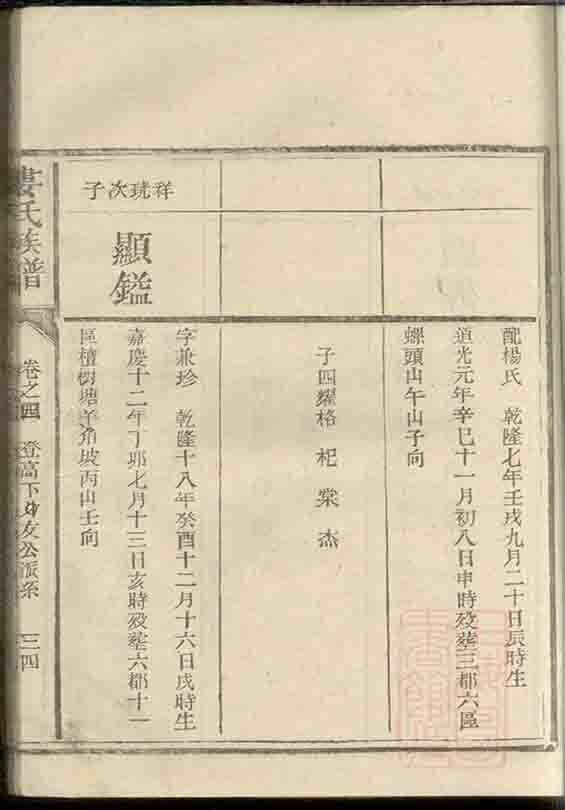 配楊氏 乾隆七年壬戌九月二十日辰時生
道光元年辛巳十一月初八日申時殁塟三都六區
螺頭山午山子向
子四耀格 杞 棠 杰
祥珖次子
顯鎰
字兼珍 乾隆十八年癸酉十二月十六日戌時生
嘉慶十二年丁卯七月十三日亥時殁塟六都十一
區檀樹塘羊角坡丙山壬向
婁氏族譜
卷之四 登高下 友公派系 三四